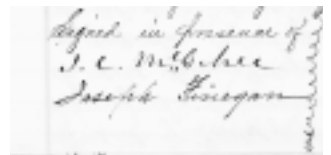 Signed in presence of
J. C. McGhee
Joseph Finegan